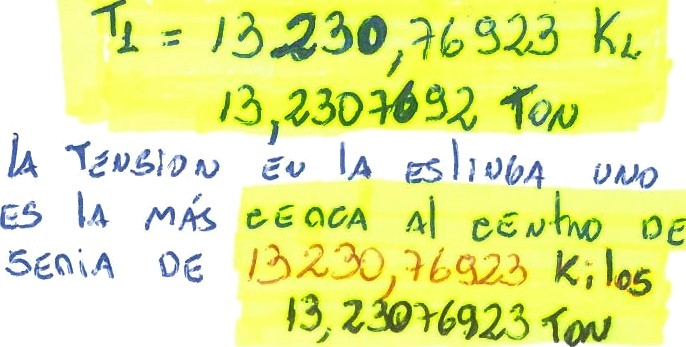 T1 = 13.230,76923 KL
13,2307692 TON
LA TENSION EN LA ESLINGA UNO
ES LA MÁS CERCA Al CENTRO DE
SERIA DE 13230,76923 Kilos
13,23076923 TON